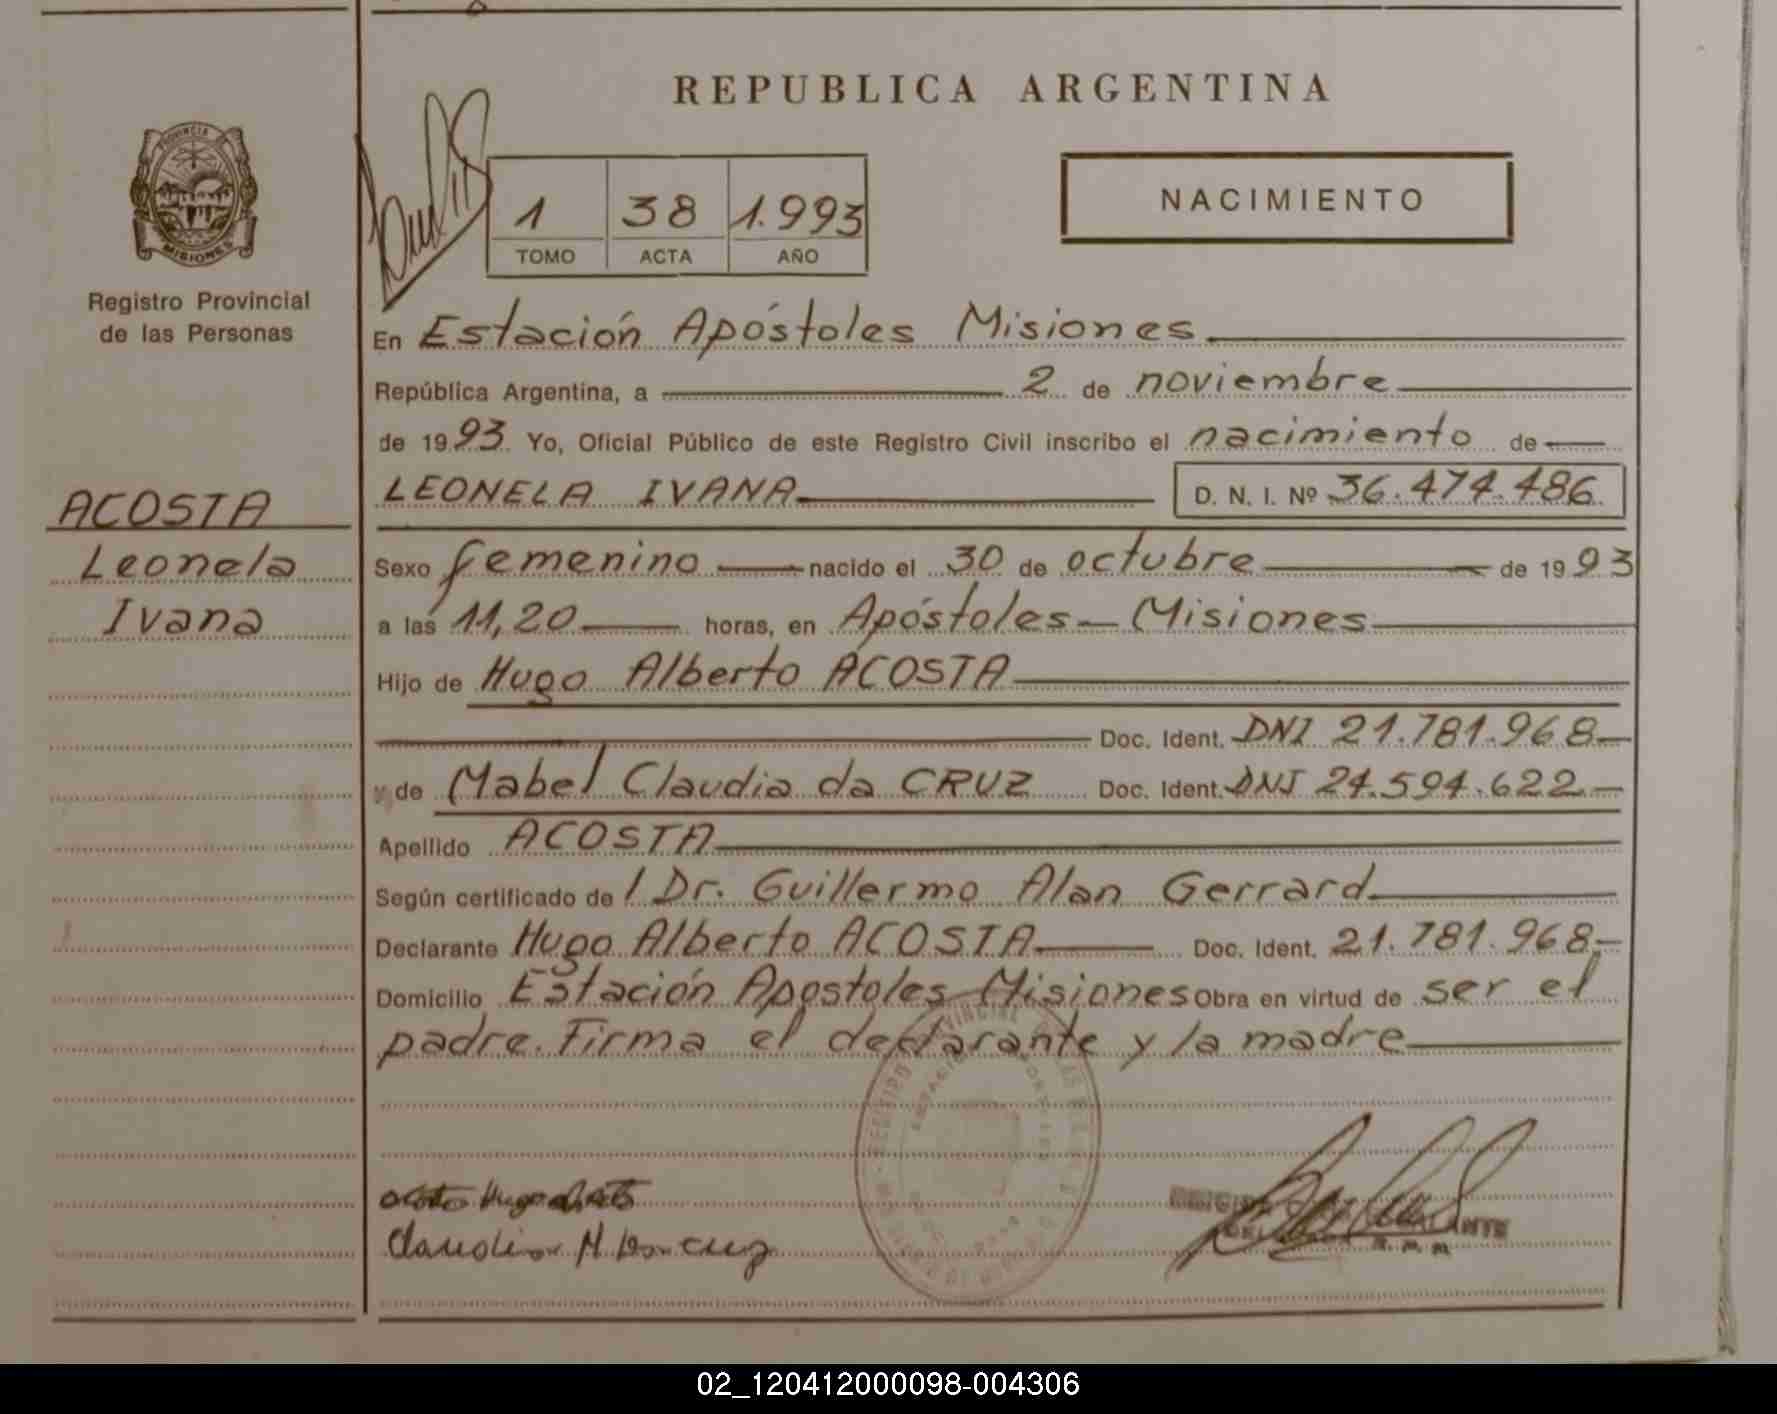 REPUBLICA ARGENTINA
PROVINCIA
MISIONES
Registro Provincial
de las Personas
1 38 1.993
TOMO ACTA AÑO
NACIMIENTO
En Estación Apóstoles Misiones
República Argentina, a 2 de noviembre
de 1993. Yo, Oficial Público de este Registro Civil inscribo el nacimiento de
LEONELA IVANA D. N. I. Nº 36.474.486
ACOSTA
Leonela
Ivana
Sexo femenino nacido el 30 de octubre de 1993
a las 11,20 horas, en Apóstoles - Misiones
Hijo de Hugo Alberto ACOSTA
Doc. Ident. DNI 21.781.968
y de Mabel Claudia da CRUZ Doc. Ident. DNI 24.594.622
Apellido ACOSTA
Según certificado de / Dr. Guillermo Alan Gerrard
Declarante Hugo Alberto ACOSTA Doc. Ident. 21.781.968
Domicilio Estación Apostoles Misiones Obra en virtud de ser el
padre. Firma el declarante y la madre
02_120412000098-004306